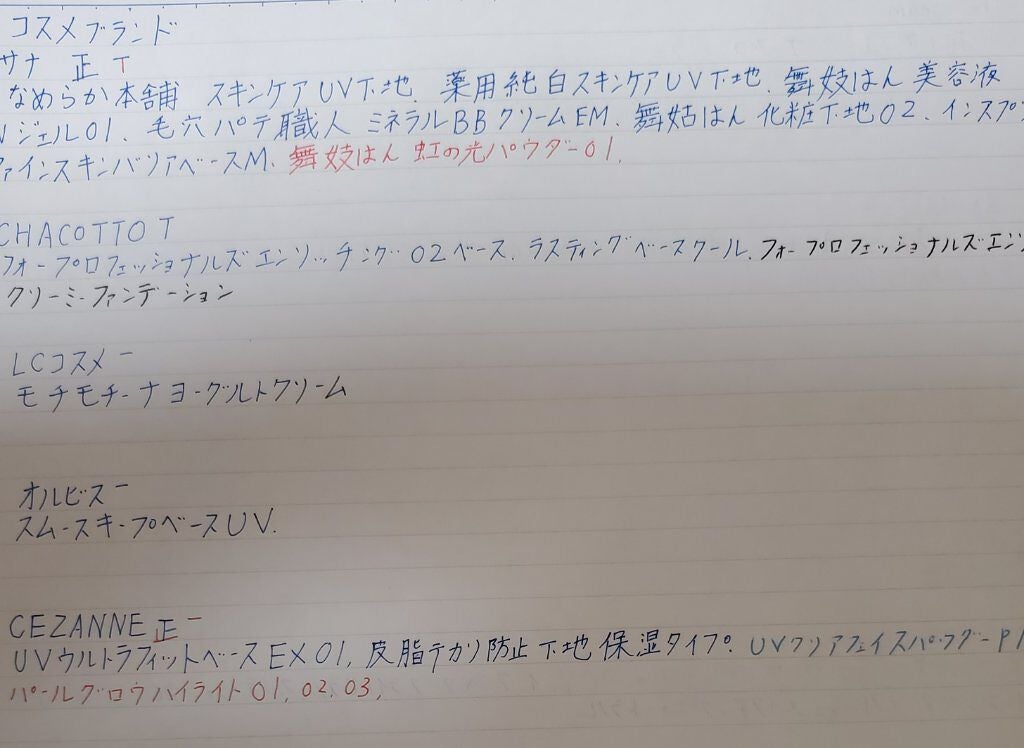 コスメブランド
サナ 正 T
なめらか本舗 スキンケアUV下地、薬用純白スキンケアUV下地、舞妓はん 美容液
Vジェル01、毛穴パテ職人 ミネラルBBクリームEM、舞姑はん 化粧下地02、インスプ
ァインスキンバリアベースM、舞妓はん 虹の光パウダー01、
CHACOTTO T
フォープロフェッショナルズエンリッチング02ベース、ラスティングベースクール、フォープロフェッショナルズエンリ
クリーミーファンデーション
LCコスメ 一
モチモチーナヨーグルトクリーム
オルビス 一
スムースキープベースUV.
CEZANNE 正一
UVウルトラフィットベースEX01、皮脂テカリ防止下地保湿タイプ、UVクリアフェイスパウダーP1
パールグロウハイライト01、02、03、